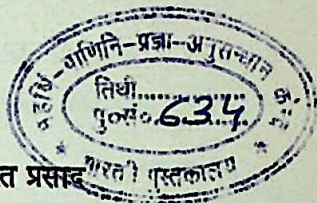 महर्षि-पाणिनि-प्रज्ञा-अनुसन्धान केंद्र
तिथी............
पु०सं० 634
भारती पुस्तकालय
त प्रसाद